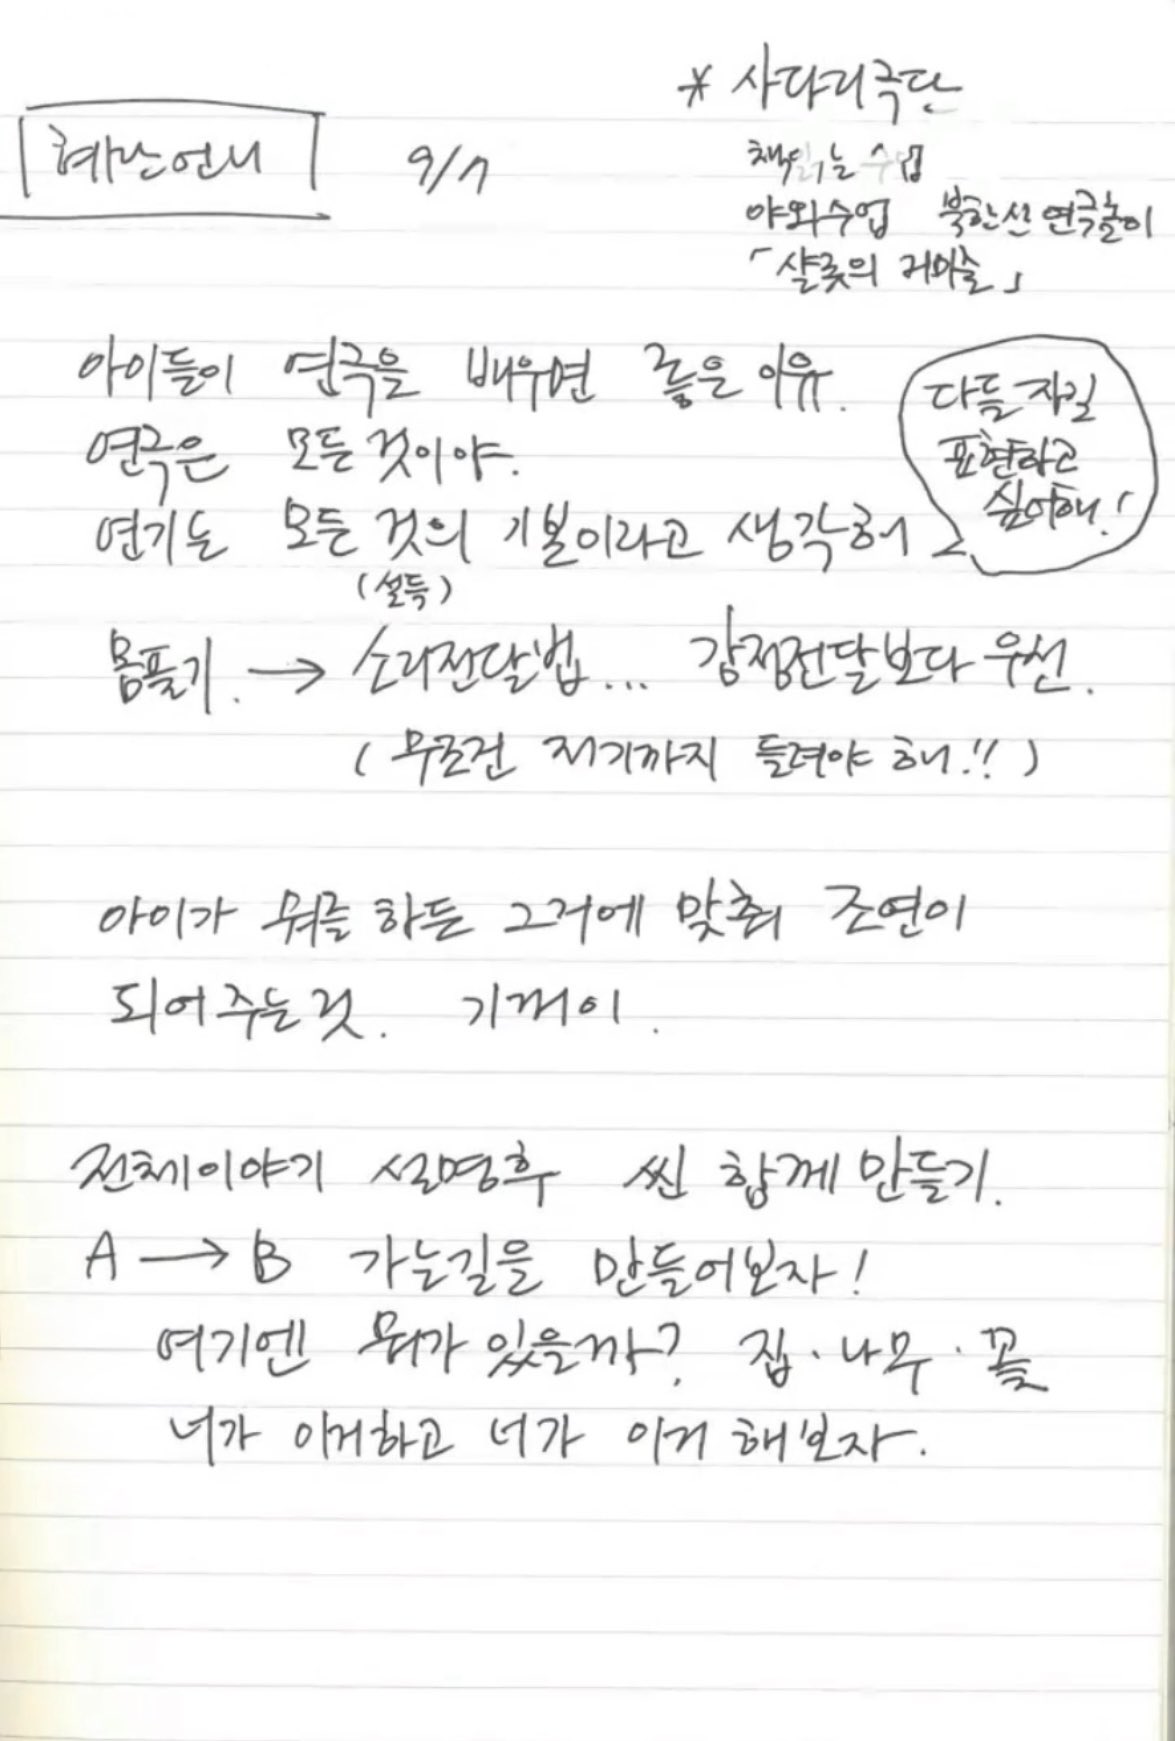 * 사다리극단
혜란언니 9/7
책읽는 수업
야외수업 북한산 연극놀이
「샬롯의 거미줄」
아이들이 연극을 배우면 좋은 이유.
연극은 모든 것이야.
연기는 모든 것의 기본이라고 생각해
(설득)
다들
표현하고
싶어해!
몸풀기. → 소리전달법... 감정전달보다 우선.
(무조건 저기까지 들려야 해!!)
아이가 뭐를 하든 그거에 맞춰 조연이
되어주는것. 기꺼이.
전체이야기 설명후 씬 함께 만들기.
A → B 가는길을 만들어보자!
여기엔 뭐가 있을까? 집·나무·꽃
너가 이거하고 너가 이거 해보자.